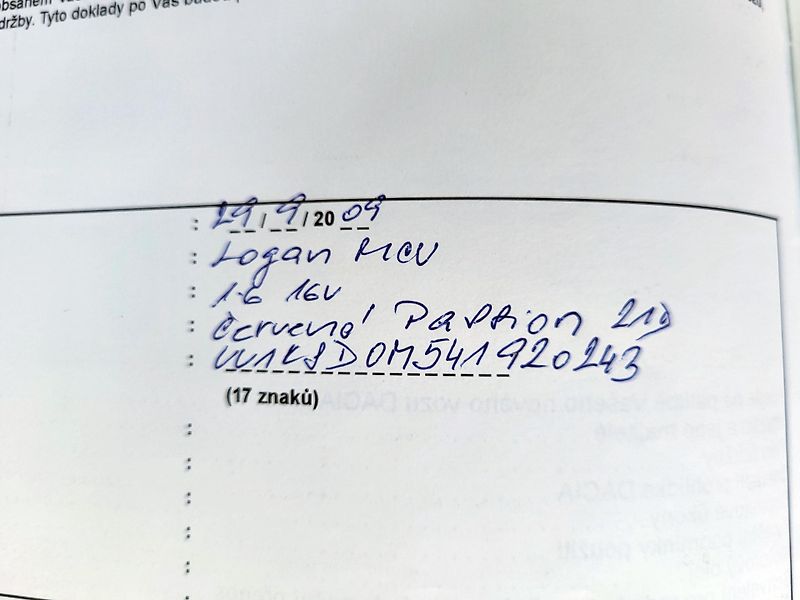 držby. Tyto doklady po Vás
: 29 / 9 / 20 09
: Logan MCV
: 1.6 16V
: Červená Passion 21D
: UU1KSD0M541920243
(17 znaků)
:
:
:
:
:
: